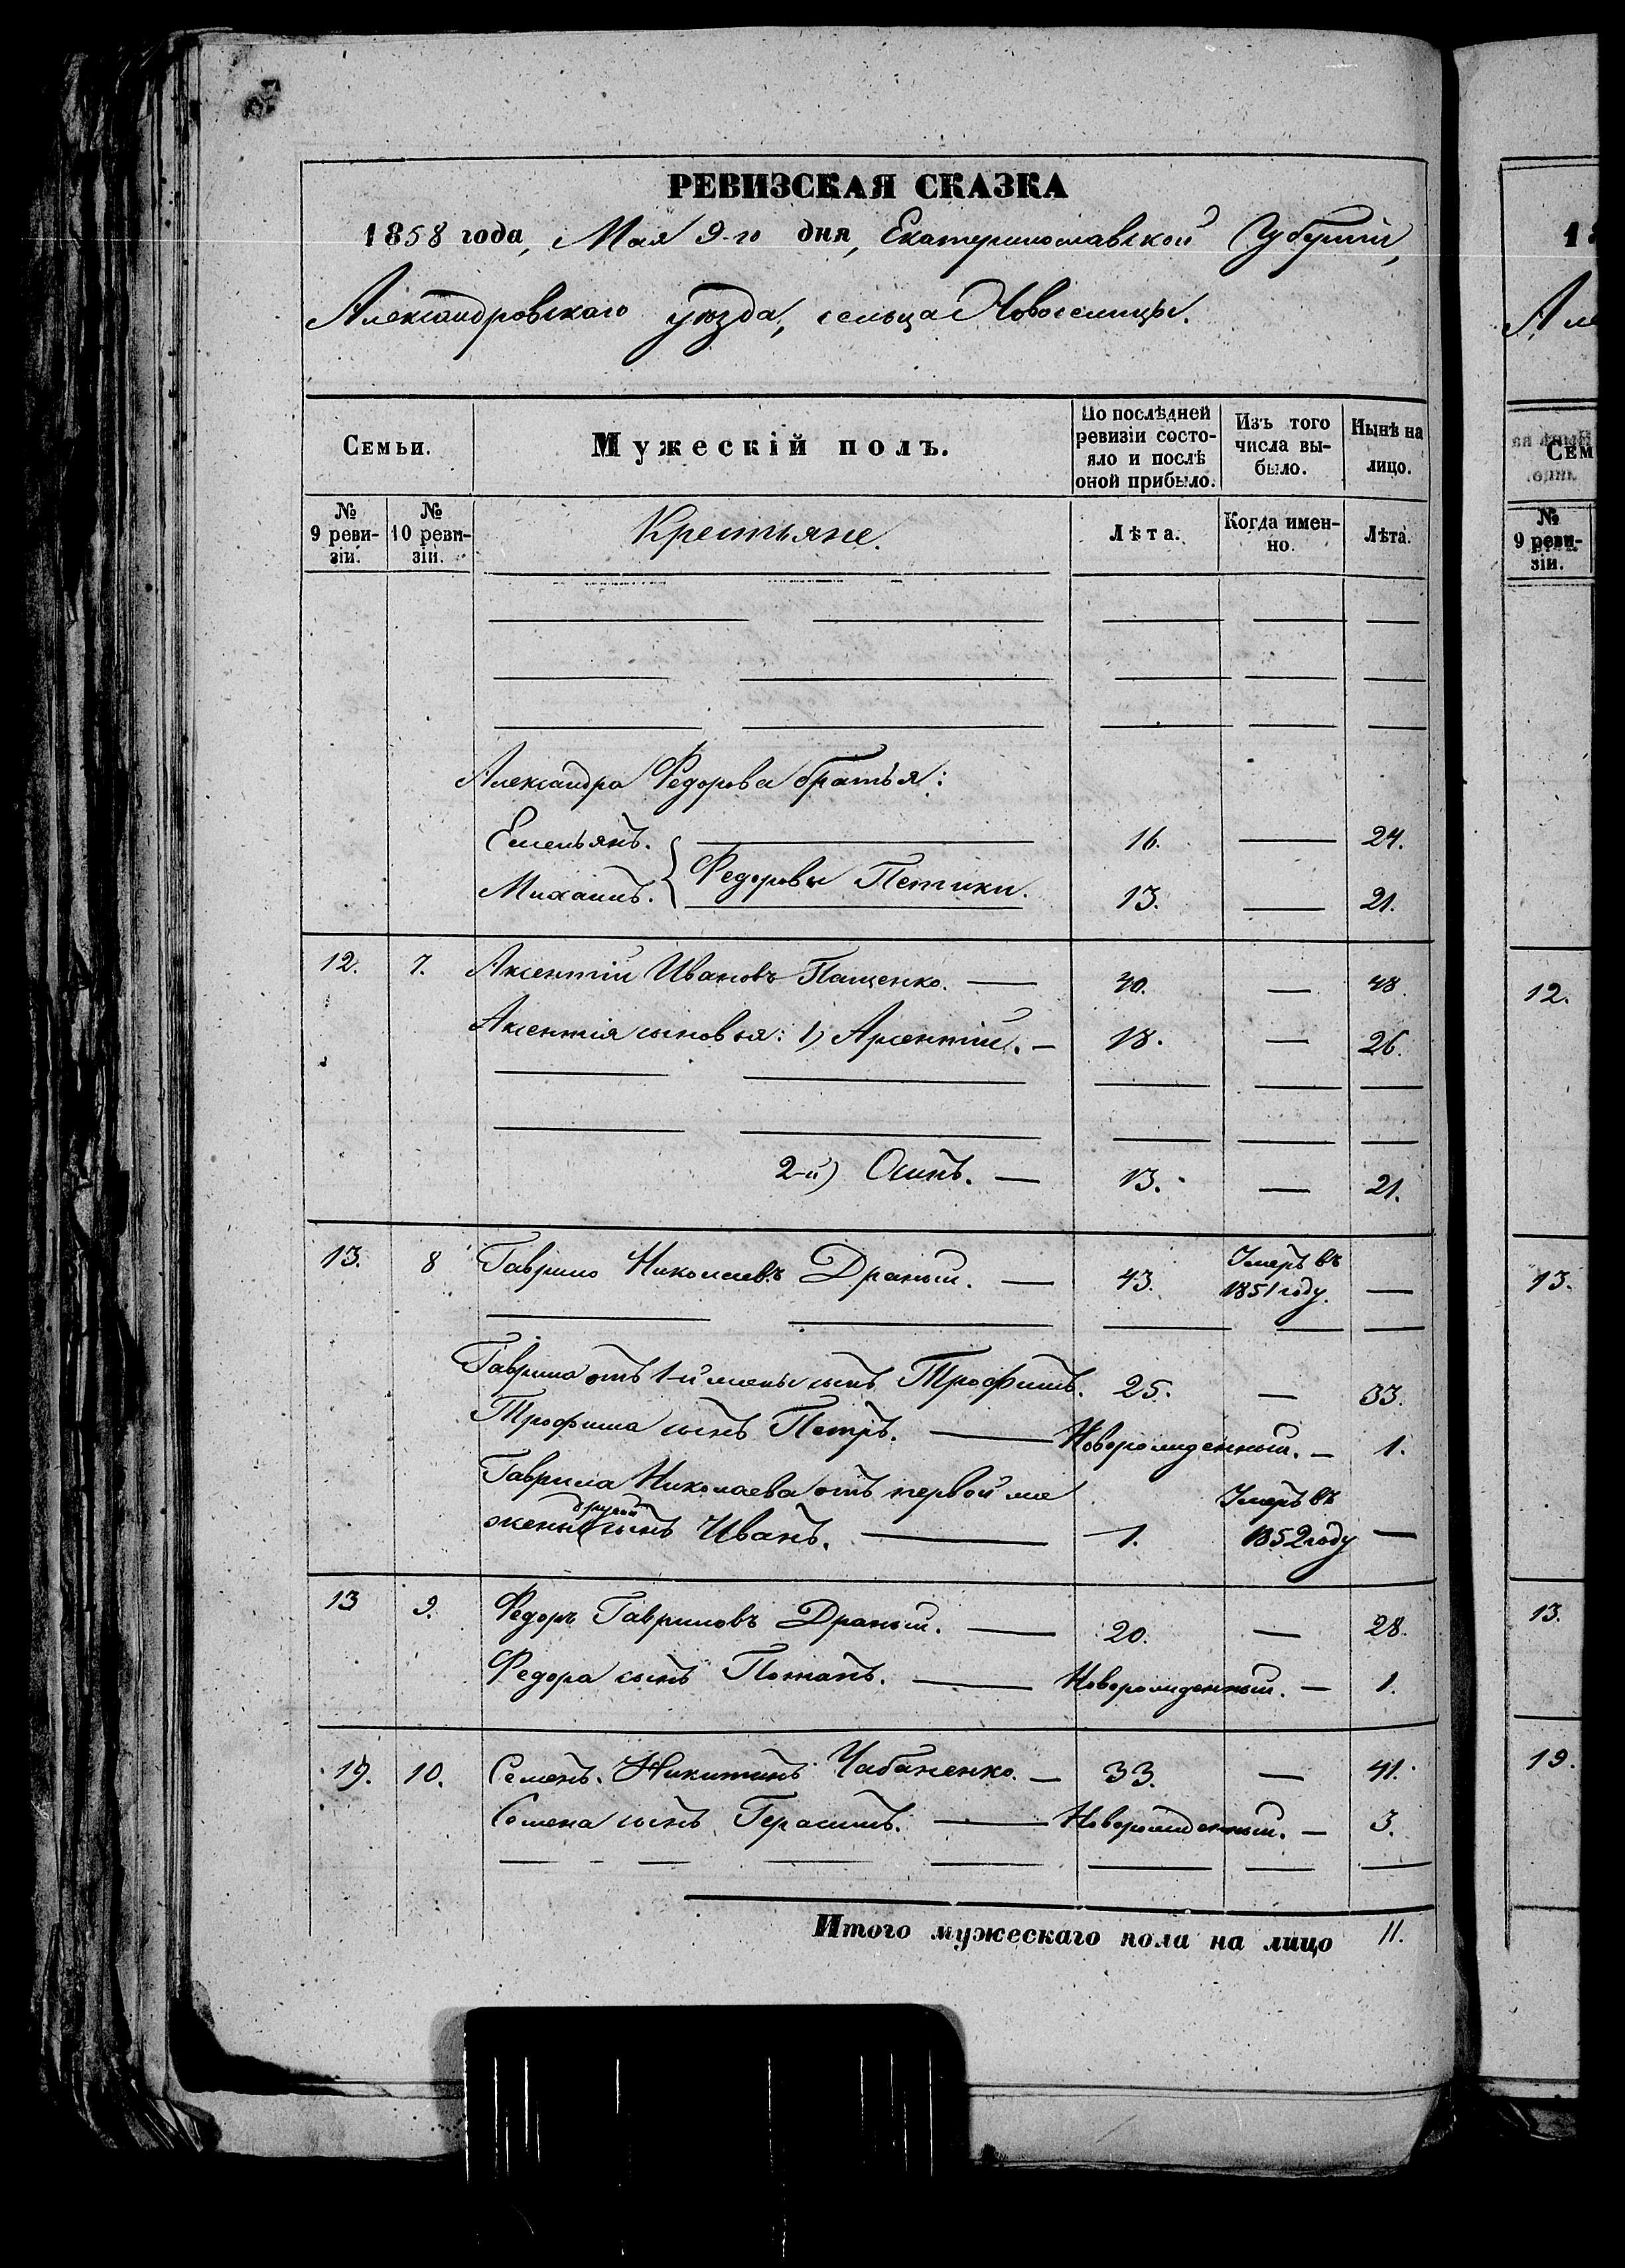 РЕВИЗСКАЯ СКАЗКА
1858 года, Мая 9-го дня, Екатеринославской Губерніи,
Александровскаго уѣзда, сельца Новоселицы.
Семьи.
Мужескій полъ.
По послѣдней
ревизіи состо-
яло и послѣ
оной прибыло.
Изъ того
числа вы-
было.
Нынѣ на
лицо.
№
9 реви-
зіи.
№
10 реви-
зіи.
Крестьяне.
Лѣта.
Когда имен-
но.
Лѣта.
Александра Федорова братья:
Емельянъ. 16. — 24.
Михаилъ. Федоровы Петики. 13. — 21.
12. 7. Аксентій Ивановъ Пащенко. — 40. — 48.
Аксентія сыновья: 1) Арсентій. — 18. — 26.
2-й) Осипъ. — 13. — 21.
13. 8 Гаврило Николаевъ Драный. — 43. Умеръ въ
1851 году. —
Гаврила отъ 1-й жены сынъ Трофимъ. 25. — 33.
Трофима сынъ Петръ. — Новорожденный. — 1.
Гаврила Николаева отъ первой же
жены другой сынъ Иванъ. — 1. Умеръ въ
1852 году —
13 9. Федоръ Гавриловъ Драный. — 20. — 28.
Федора сынъ Потапъ. — Новорожденный. — 1.
19. 10. Семенъ Никитинъ Чабаненко. — 33. — 41.
Семена сынъ Герасимъ. — Новорожденный. — 3.
Итого мужескаго пола на лицо 11.
1
А
Сем
№
9 реви-
зіи.
12.
13.
13.
19.